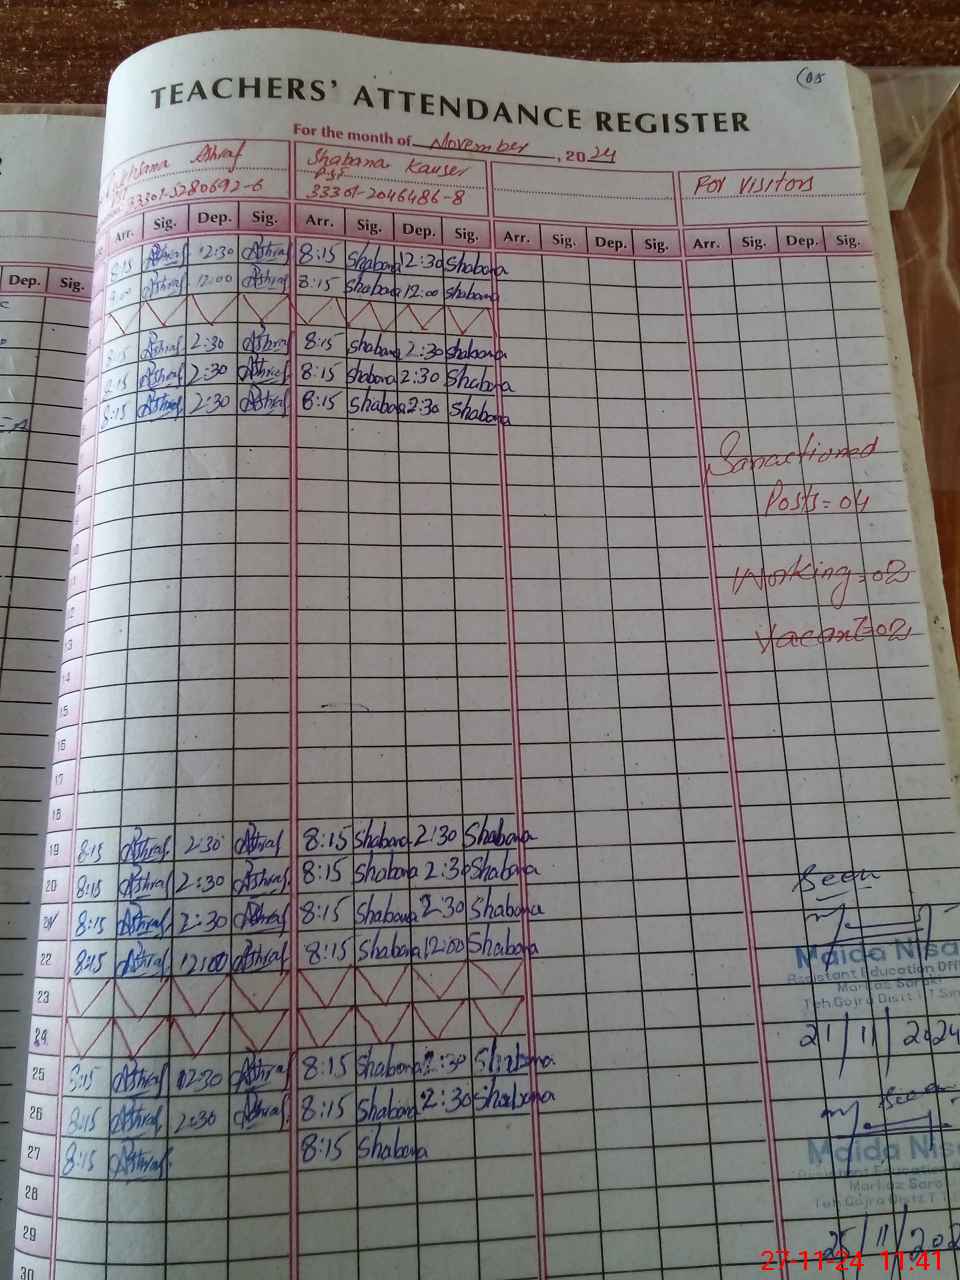 (05
TEACHERS' ATTENDANCE REGISTER
For the month of November, 2024
Ashraf Shabana Kauser For visitors
PST
33301-5280692-6 33301-2046486-8
Arr. Sig. Dep. Sig. Arr. Sig. Dep. Sig. Arr. Sig. Dep. Sig. Arr. Sig. Dep. Sig.
Dep. Sig.
8:15 Ashraf 12:30 Ashraf 8:15 Shabana 12:30 Shabana
8:00 Ashraf 12:00 Ashraf 8:15 Shabana 12:00 Shabana
8:15 Ashraf 2:30 Ashraf 8:15 Shabana 2:30 Shabana
8:15 Ashraf 2:30 Ashraf 8:15 Shabana 2:30 Shabana
8:15 Ashraf 2:30 Ashraf 8:15 Shabana 2:30 Shabana
Sanactioned
Posts = 04
Working = 02
Vacant = 02
10
11
12
13
14
15
16
17
18
19 8:15 Ashraf 2:30 Ashraf 8:15 Shabana 2:30 Shabana
20 8:15 Ashraf 2:30 Ashraf 8:15 Shabana 2:30 Shabana
21 8:15 Ashraf 2:30 Ashraf 8:15 Shabana 2:30 Shabana
22 8:15 Ashraf 12:00 Ashraf 8:15 Shabana 12:00 Shabana
23
24
25 8:15 Ashraf 2:30 Ashraf 8:15 Shabana 2:30 Shabana
26 8:15 Ashraf 2:30 Ashraf 8:15 Shabana 2:30 Shabana
27 8:15 Ashraf 8:15 Shabana
28
29
30
Seen
Maida Nisa
Assistant Education Offi
Markaz Sarak
Teh Gojra Distt T T Sin
21/11/2024
Seen
Maida Nis
Education
Markaz Sara
Teh Gojra Distt T T
25/11/202
27-11-24 11:41